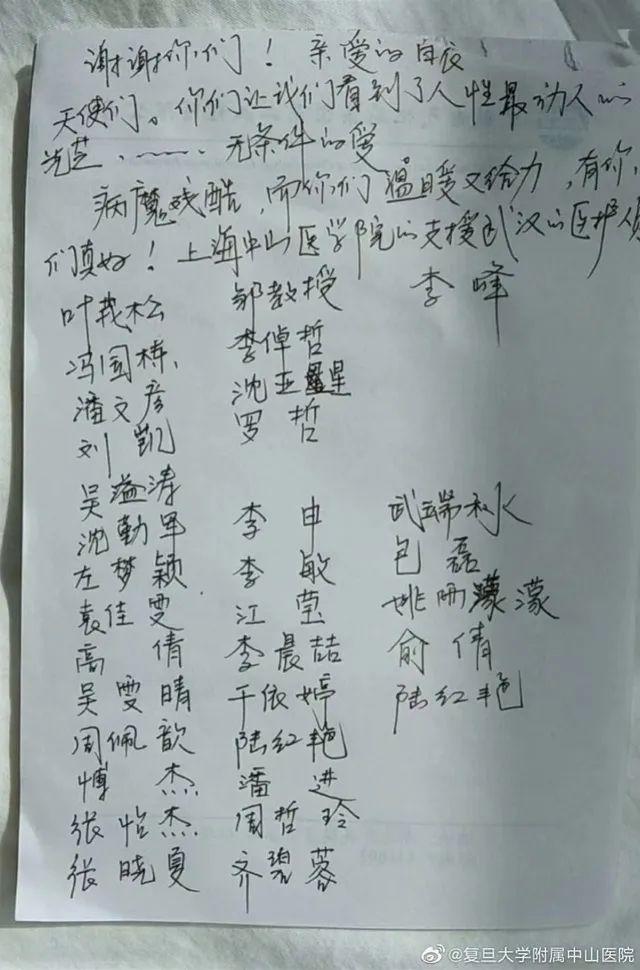 谢谢你们！亲爱的白衣
天使们。你们让我们看到了人性最动人的
光芒，——无条件的爱。
病魔残酷，而你们温暖又给力，有你
们真好！上海中山医学院的支援武汉的医护
叶茂松 邹教授 李峰
冯国栋 李倬哲
潘文彦 沈亚星
刘凯 罗哲
吴溢涛
沈勤军 李申 武端水
左梦颖 李敏 包磊
袁佳雯 江莹 姚雨濛
高倩 李晨喆 俞倩
吴雯晴 于依婷 陆红艳
周佩歆 陆红艳
傅杰 潘进
张怡杰 周哲玲
张晓夏 齐碧蓉
@复旦大学附属中山医院